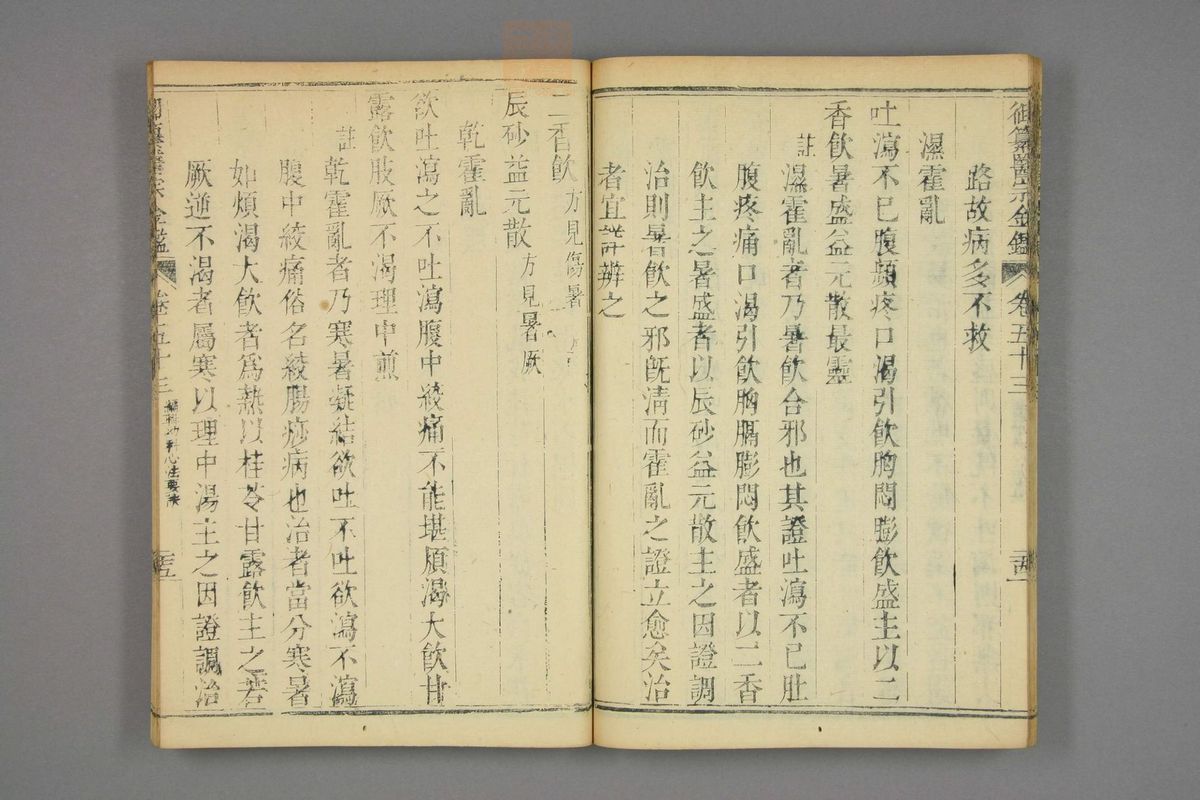 御纂醫宗金鑑 卷五十三
路故病多不救
濕霍亂
吐瀉不已腹頻疼口渴引飲胸悶膨飲盛主以二
香飲暑盛益元散最靈
註濕霍亂者乃暑飲合邪也其證吐瀉不已肚
腹疼痛口渴引飲胸膈膨悶飲盛者以二香
飲主之暑盛者以辰砂益元散主之因證調
治則暑飲之邪旣清而霍亂之證立愈矣治
者宜詳辨之
二香飲方見傷暑
辰砂益元散方見暑厥
乾霍亂
欲吐瀉之不吐瀉腹中絞痛不能堪煩渴大飲甘
露飲肢厥不渴理中煎
註乾霍亂者乃寒暑凝結欲吐不吐欲瀉不瀉
腹中絞痛俗名絞腸痧病也治者當分寒暑
如煩渴大飲者爲熱以桂苓甘露飲主之若
厥逆不渴者屬寒以理中湯主之因證調治
卷五十三 心法要訣